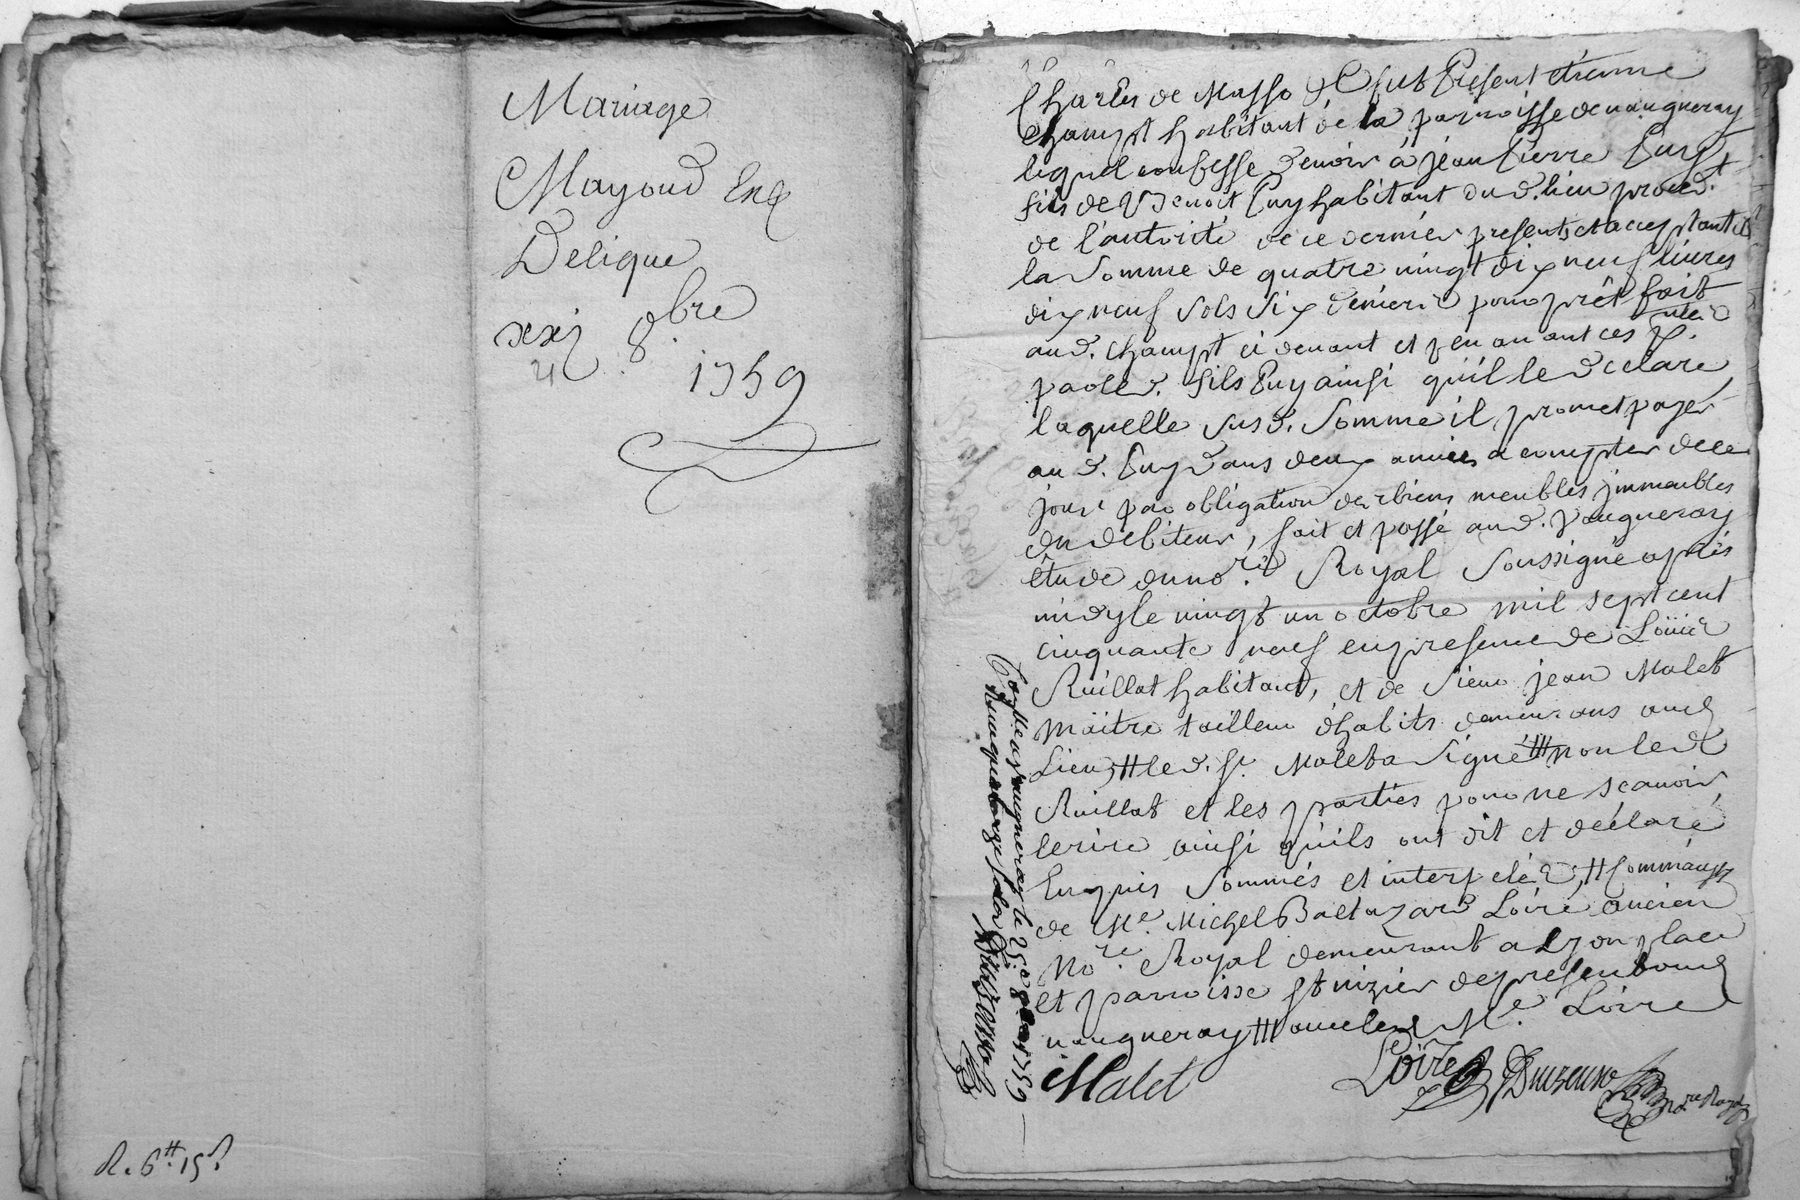 Mariage
Mayoud Et
Delique
xxj 8.bre
21
1759
R. 6tt. 15s.
Charles de Masso & fut Present etienne
champt habitant de la parroisse de vaugneray
lequel confesse devoir à jean Pierre Puy
fils de Benoit Puy habitant du d. lieu proced.t
de l'autorité de ce dernier presents et acceptants
la somme de quatre vingt dix neuf livres
dix neuf sols six deniers pour prêt fait
aud. champt ci devant et peu avant ces p.ntes
par led. fils Puy ainsi qu'il le declare,
laquelle susd. somme il promet payer
aud. Puy dans deux années a compter de ce
jour par obligation des biens meubles jmmeubles
du debiteur, fait et passé aud. vaugneray
étude du no.re Royal soussigné après
midy le vingt un octobre mil sept cent
cinquante neuf en presence de Loüis
Ruillat habitant, et de sieur jean Malet
maitre tailleur d'habits demeurans aud
Lieu, ++ le d. sr. Malet a signé +++ non led
Ruillat et les parties pour ne sçavoir
lecrire ainsi qu'ils ont dit et déclaré
Enquis sommés et interpelés, ++
de Me. Michel Baltazard Loire ancien
no.re Royal demeurant a Lyon place
et parroisse st nizier de present aud
vaugneray +++ avec led Me. Loire
Malet
Loire
no.re Royal
Con.lle a vaugneray le 25.e 8bre 1759